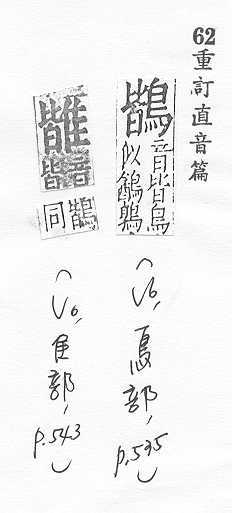 62重訂直音篇
鶛
音皆鳥
似
(V6, 鳥部, p.535)
音皆
鶛同
(V6, 隹部, p.543)